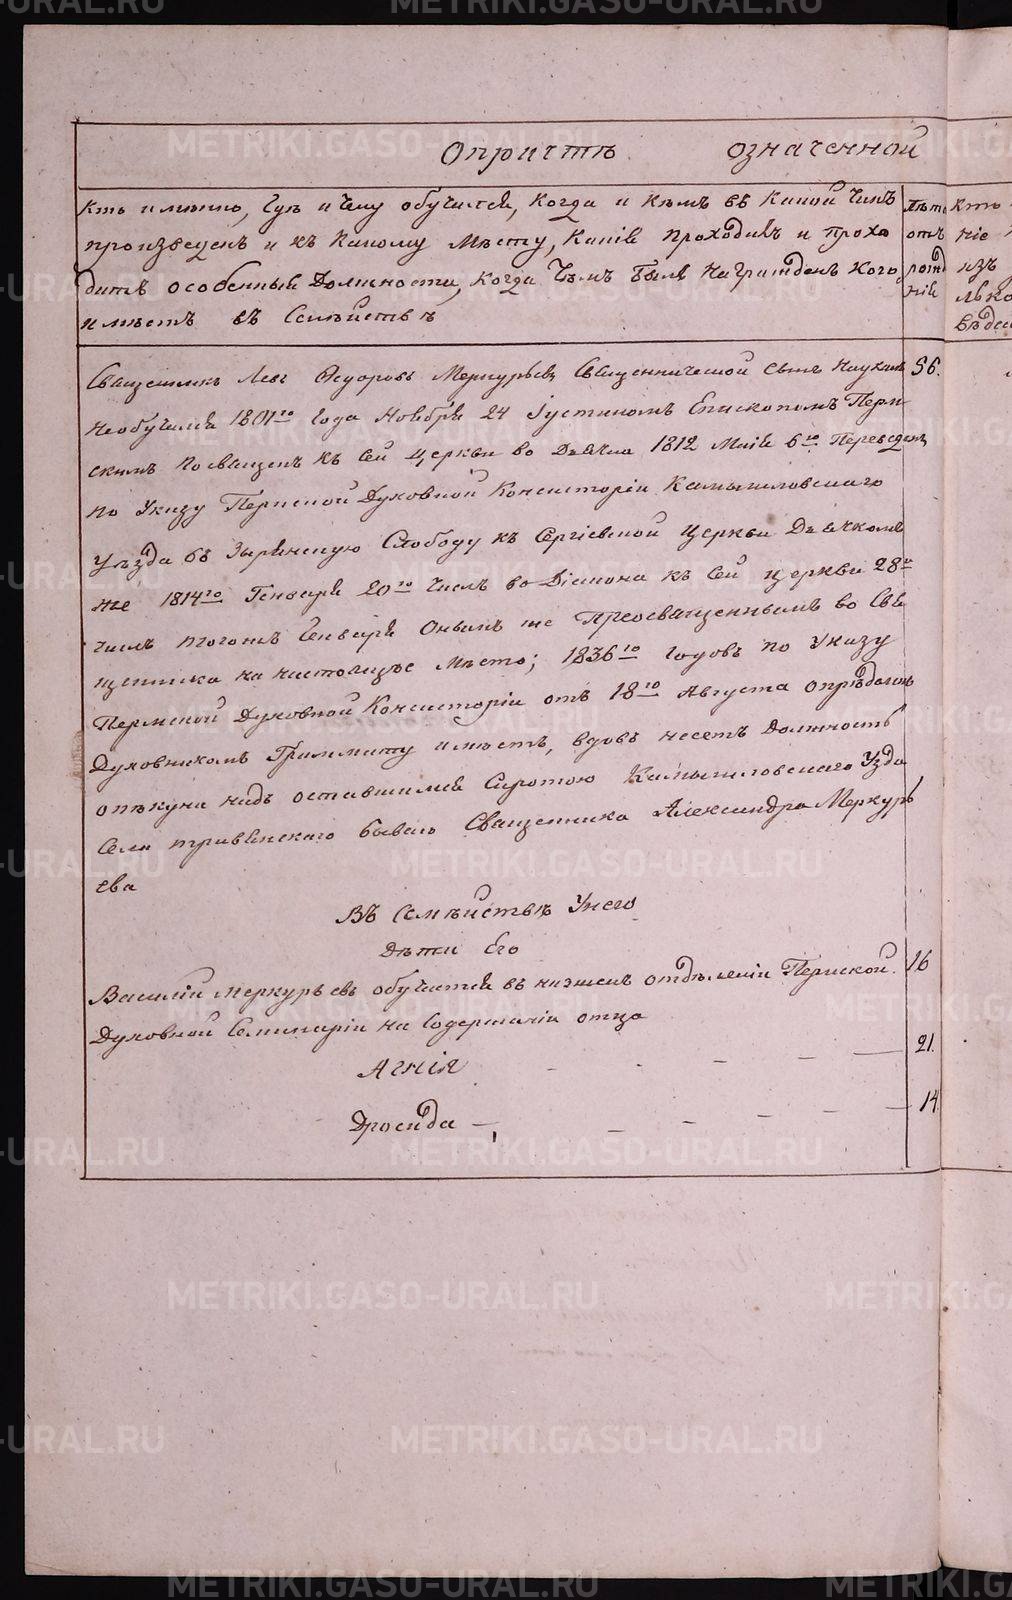 О причтѣ означенной
Кто имянно, гдѣ и чему обучался, когда и кѣмъ въ какой чинъ
произведенъ и къ какому мѣсту, какіе проходилъ и прохо
дитъ особенныя должности, когда чѣмъ былъ награжденъ кого
имѣетъ въ семѣйствѣ
Лѣта
отъ
рожд
нія
Кто
ніе
изъ
лько
вѣде
Священникъ Левъ Федоровъ Меркурьевъ Священнической сынъ наукамъ 56.
необучался 1801го года Ноября 24 Іустиномъ Епископомъ Перм
скимъ посвященъ къ сей церкви во Дьячка 1812 Маія 6го переведенъ
по Указу Пермской Духовной Консисторіи Камышловскаго
уѣзда въ Зырянскую Слободу къ Сергіевской церкви Дьячкомъ
же 1814го Генваря 20го числъ во Діакона къ сей церкви 28го
числъ тогожъ Генваря онымъ же Преосвященнымъ во Свя
щенника на настоящее мѣсто; 1836го годовъ по Указу
Пермской Духовной Консисторіи отъ 18го Августа опредѣленъ
Духовникомъ Грамматту имѣетъ, вдовъ несетъ должность
опѣкуна надъ оставшимся сиротою Камышловскаго Уѣзда
Села бываго Священника Александра Меркурь
ева
Въ Семѣйствѣ у него
Дѣти Его
Василій Меркурьевъ обучается въ низшемъ отдѣленіи Пермской 16
Духовной Семинаріи на содержаніи отца
Агнія 21.
Дросида 14
METRIKI.GASO-URAL.RU